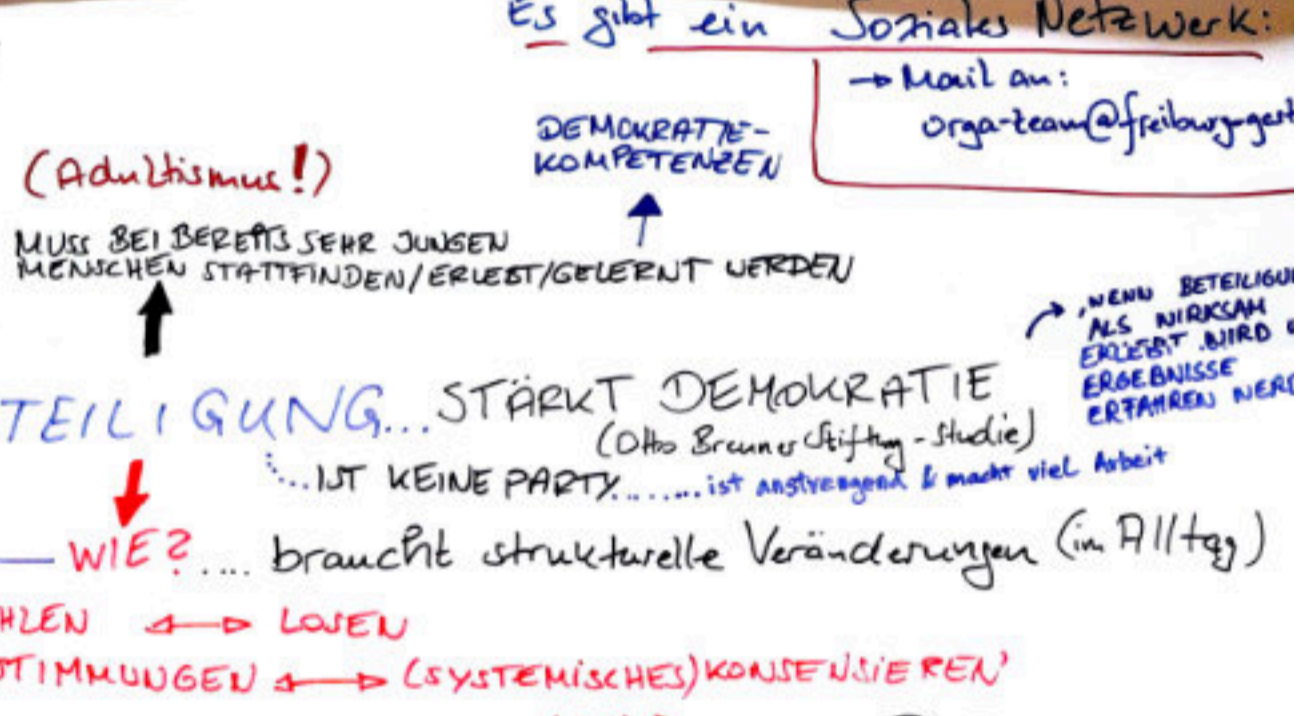 Es gibt ein Soziales Netzwerk:
→ Mail an:
orga-team@freiburg-gest
DEMOKRATIE-
KOMPETENZEN
(Adultismus!)
MUSS BEI BEREITS SEHR JUNGEN
MENSCHEN STATTFINDEN/ERLEBT/GELERNT WERDEN
WENN BETEILIGU
ALS WIRKSAM
ERLEBT WIRD
ERGEBNISSE
ERFAHREN WERD
TEILIGUNG... STÄRKT DEMOKRATIE
(Otto Brenner Stiftung - Studie)
...IST KEINE PARTY........ist anstrengend & macht viel Arbeit
WIE?.... braucht strukturelle Veränderungen (im Alltag)
HLEN ↔ LOSEN
STIMMUNGEN ↔ (SYSTEMISCHES) KONSENSIEREN'